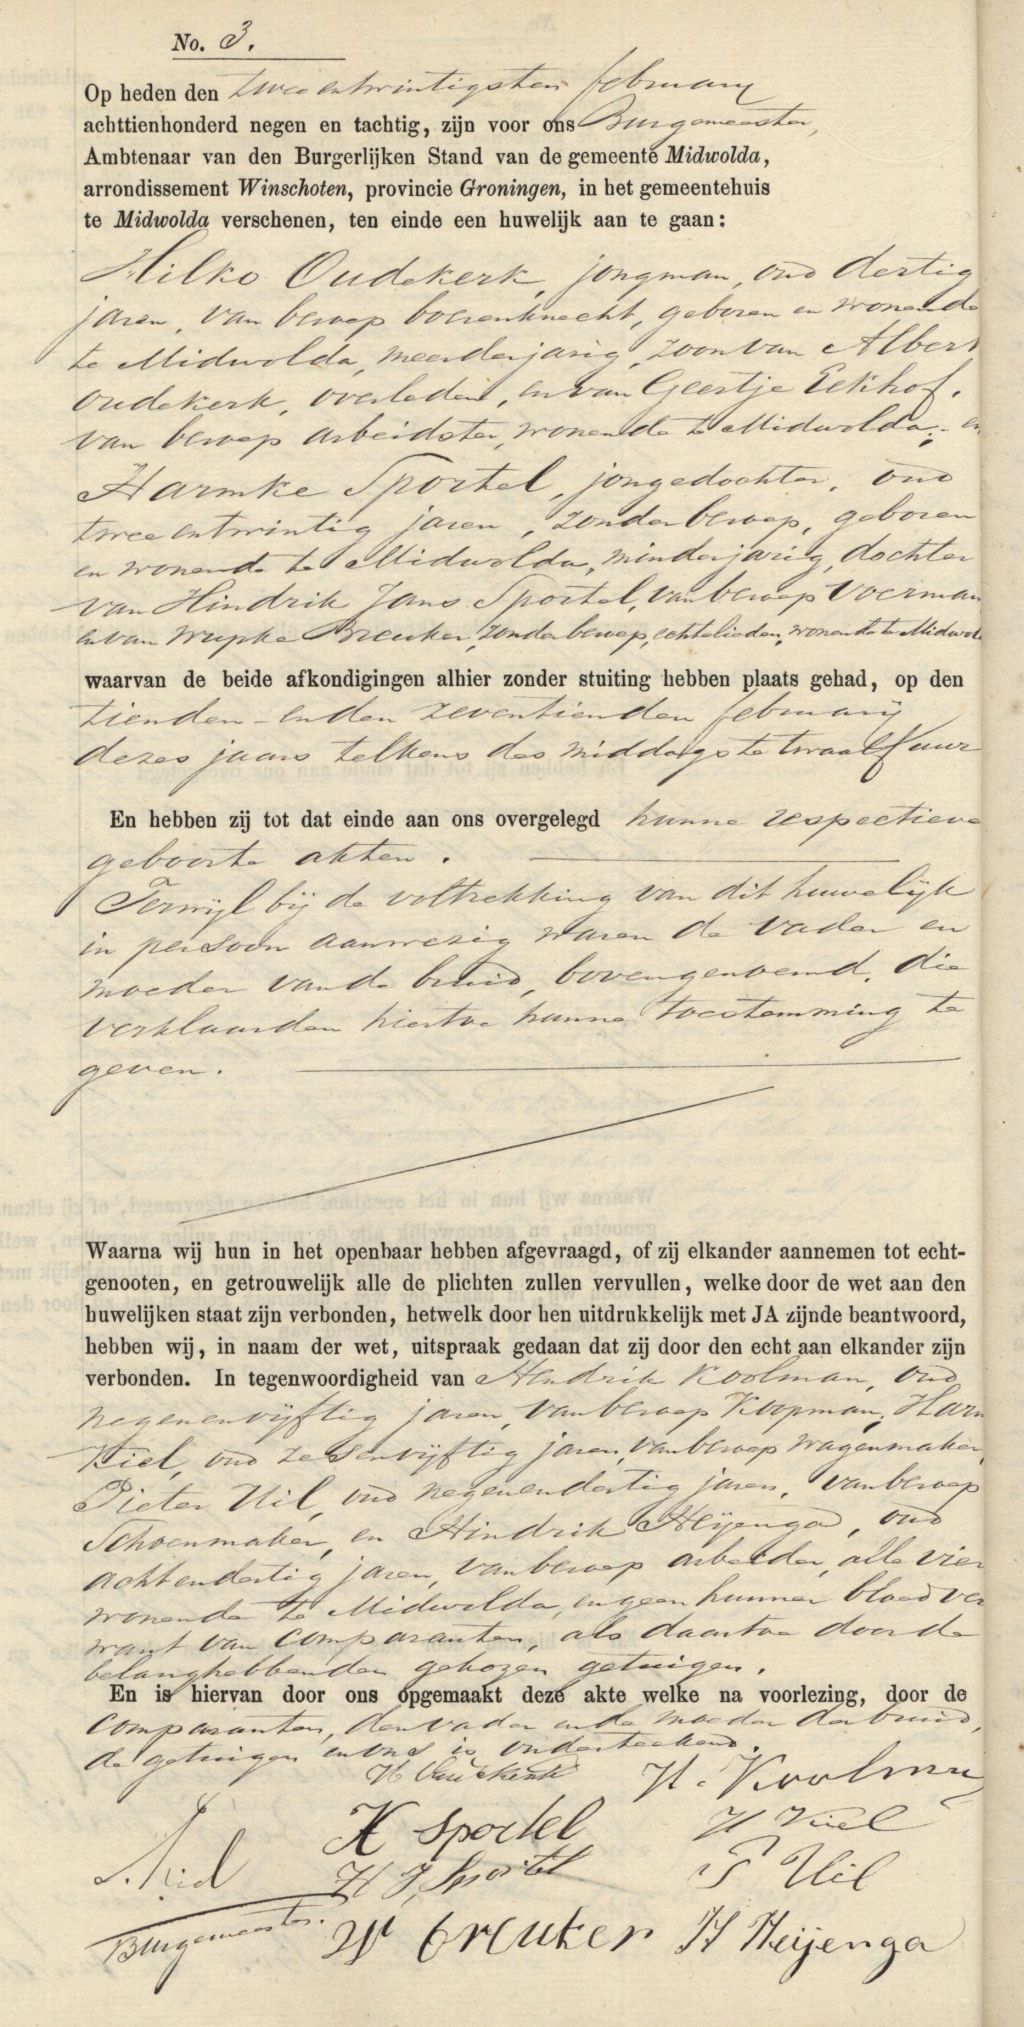 No. 3.
Op heden den twee en twintigsten februarij
achttienhonderd negen en tachtig, zijn voor ons Burgemeester,
Ambtenaar van den Burgerlijken Stand van de gemeente Midwolda,
arrondissement Winschoten, provincie Groningen, in het gemeentehuis
te Midwolda verschenen, ten einde een huwelijk aan te gaan:
Hilko Oudekerk, jongman, oud dertig
jaren, van beroep boerenknecht, geboren en wonende
te Midwolda, meerderjarig, zoon van Albert
Oudekerk, overleden, en van Geertje Eekhof,
van beroep arbeidster, wonende te Midwolda; en
Harmke Sportel, jongedochter, oud
twee entwintig jaren, zonder beroep, geboren
en wonende te Midwolda, minderjarig, dochter
van Hindrik Jans Sportel, van beroep Voerman
en van Wupke Breuker, zonder beroep, echtelieden, wonende te Midwol
waarvan de beide afkondigingen alhier zonder stuiting hebben plaats gehad, op den
tienden en den zeventienden februarij
dezes jaars telkens des middags te twaalf uur
En hebben zij tot dat einde aan ons overgelegd hunne respectieve
geboorte akten.
Terwijl bij de voltrekking van dit huwelijk
in persoon aanwezig waren de vader en
moeder van de bruid, bovengenoemd, die
verklaarden hiertoe hunne toestemming te
geven.
Waarna wij hun in het openbaar hebben afgevraagd, of zij elkander aannemen tot echt-
genooten, en getrouwelijk alle de plichten zullen vervullen, welke door de wet aan den
huwelijken staat zijn verbonden, hetwelk door hen uitdrukkelijk met JA zijnde beantwoord,
hebben wij, in naam der wet, uitspraak gedaan dat zij door den echt aan elkander zijn
verbonden. In tegenwoordigheid van Hendrik Koolman, oud
negenenvijftig jaren, van beroep Koopman, Harm
Kiel, oud zesenvijftig jaren, van beroep wagenmaker,
Pieter Uil, oud negenendertig jaren, van beroep
Schoenmaker, en Hindrik Heijenga, oud
achtendertig jaren, van beroep arbeider, alle vier
wonende te Midwolda, en geen hunner bloedver
want van comparanten, als daartoe door de
belanghebbenden gekozen getuigen.
En is hiervan door ons opgemaakt deze akte welke na voorlezing, door de
comparanten, den vader en de moeder der bruid,
de getuigen en ons is onderteekend.
H Oudekerk H. Koolman
H Sportel H Kiel
H J Sportel P Uil
Burgemeester. W Breuker H Heijenga